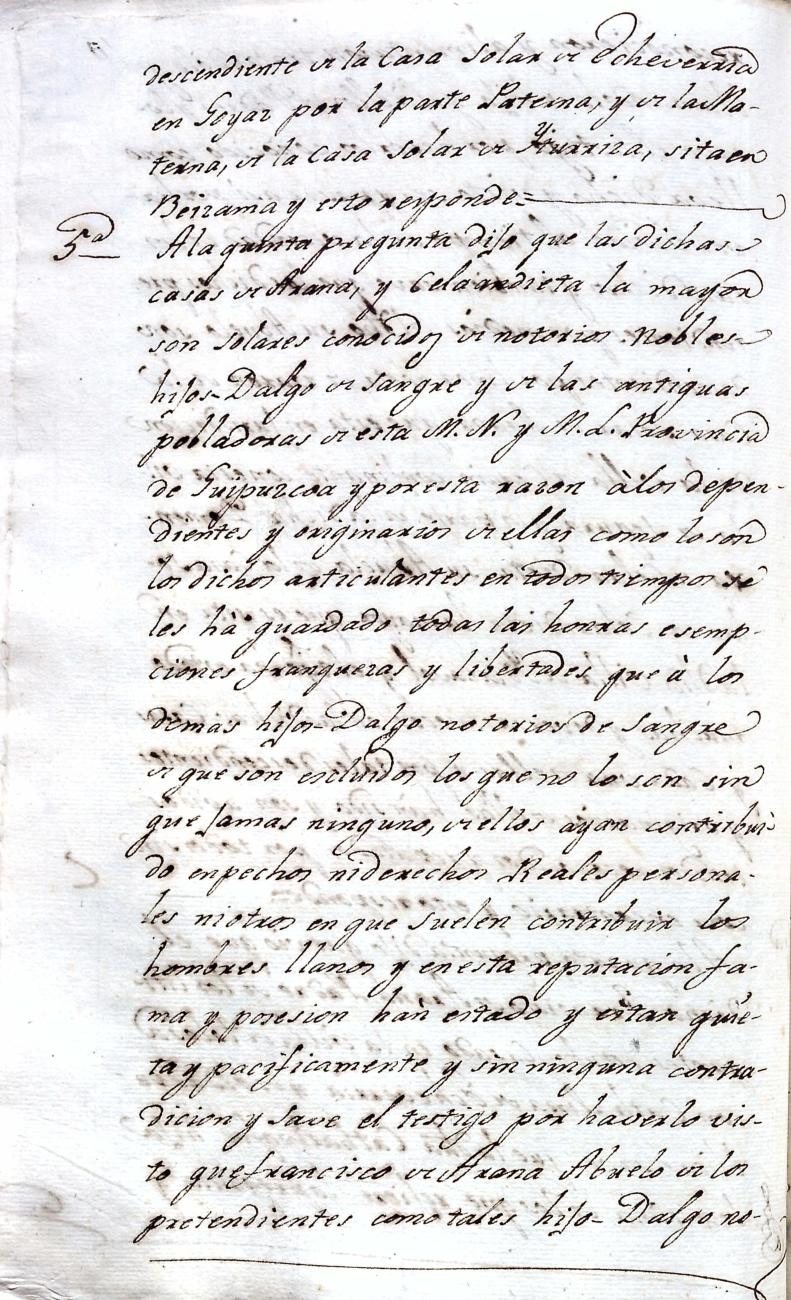 descendiente de la Casa Solar de Echeverria
en Goyaz por la parte Paterna, y de la Ma-
terna, de la Casa Solar de Yturriza, sita en
Beizama y esto responde=
5.a A la quinta pregunta dijo que las dichas
casas de Arana, y Celaardieta la mayor
son solares conocidos de notorios Nobles
hijos-Dalgo de Sangre y de las antiguas
pobladoras de esta M. N. y M. L. Provincia
de Guipuzcoa y por esta razon à los depen-
dientes y originarios de ellas como lo son
los dichos articulantes en todos tiempos se
les hà guardado todas las honras esemp-
ciones franquezas y libertades que à los
demas hijos-Dalgo notorios de Sangre
de que son escluidos los que no lo son sin
que Jamas ninguno, de ellos ayan contribui-
do en pechos ni derechos Reales persona-
les ni otros en que suelen contribuir los
hombres llanos y en esta reputacion fa-
ma y posesion hàn estado y estàn quie-
ta y pacificamente y sin ninguna contra-
dicion y Save el testigo por haverlo vis-
to que francisco de Arana Abuelo de los
pretendientes como tales hijo-Dalgo no-